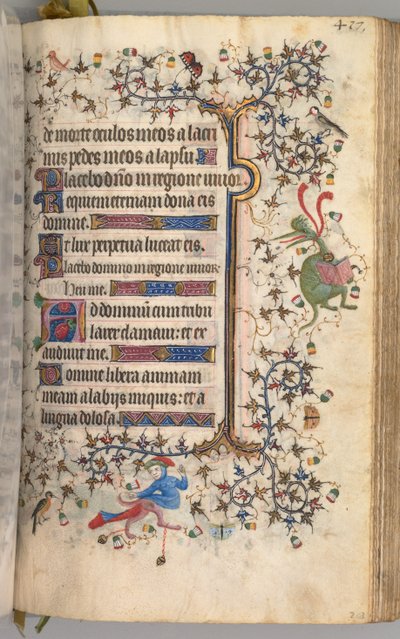 427.
de morte oculos meos a lacri
mis pedes meos a lapsu.
Placebo dño in regione uiuor
Requiem eternam dona eis
domine.
Et lux perpetua luceat eis.
Placebo domino in regione uiuor
Heu me.
Ad dominum cum tribu
larer clamaui: et ex
audiuit me.
Domine libera animam
meam a labijs iniquis: et a
lingua dolosa.